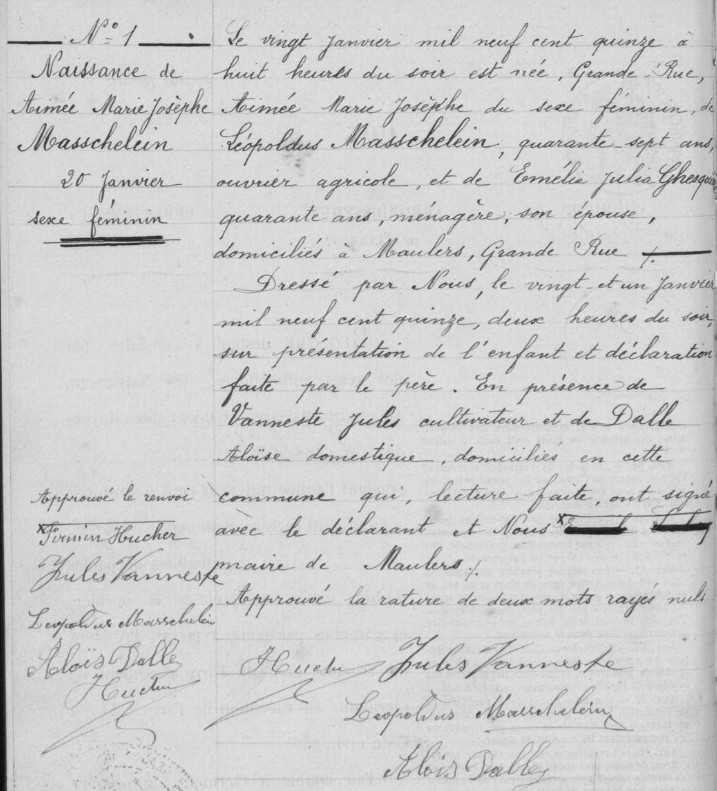 N° 1
Naissance de
Aimée Marie Josèphe
Masschelein
20 Janvier
sexe féminin
Le vingt Janvier mil neuf cent quinze à
huit heures du soir est née, Grande Rue,
Aimée Marie Josèphe du sexe féminin, de
Léopoldus Masschelein, quarante-sept ans,
ouvrier agricole, et de Emélia Julia
quarante ans, ménagère, son épouse,
domiciliés à Maulers, Grande Rue ./.
Dressé par Nous, le vingt-et-un Janvier
mil neuf cent quinze, deux heures du soir,
sur présentation de l'enfant et déclaration
faite par le père. En présence de
Vanneste Jules cultivateur et de Dalle
Aloïse domestique, domiciliés en cette
commune qui, lecture faite, ont signé
avec le déclarant et Nous x
maire de Maulers ./.
Approuvé la rature de deux mots rayés nuls
Approuvé le renvoi
x Firmin Hucher
Jules Vanneste
Leopoldus Masschelein
Aloïs Dalle
Hucher
Hucher
Jules Vanneste
Leopoldus Masschelein
Aloïs Dalle